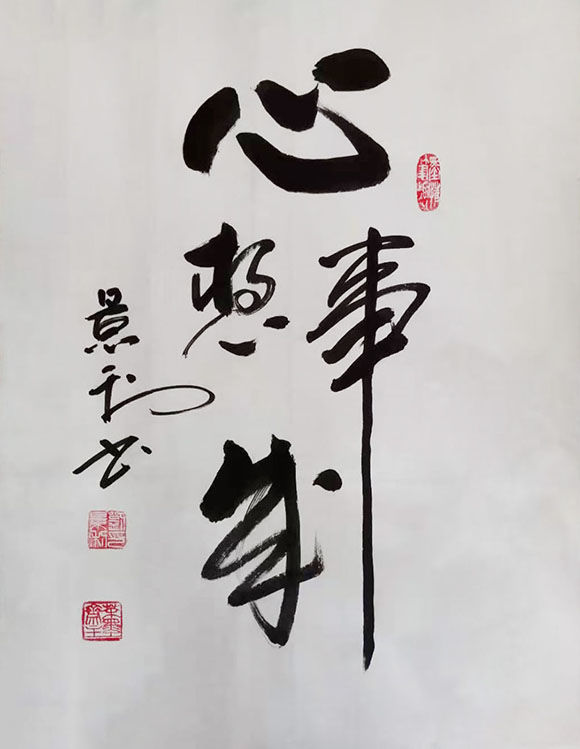 心想事成
景利书